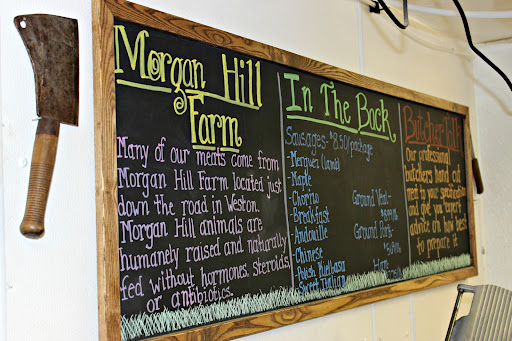 Morgan Hill
Farm
Many of our meats come from
Morgan Hill Farm located just
down the road in Weston.
Morgan Hill animals are
humanely raised and naturally
fed without hormones, steroids,
or antibiotics.
In The Back
Sausages- $8.50/package
-Merguez (lamb)
-Maple
-Chorizo
-Breakfast
-Andouille
-Chinese
-Polish Kielbasa
-Sweet Italian
Ground Veal-
Ground Pork-
Butcher Talk
Our professional
butchers hand cut
meat to your specifications
and give you expert
advice on how best
to prepare it